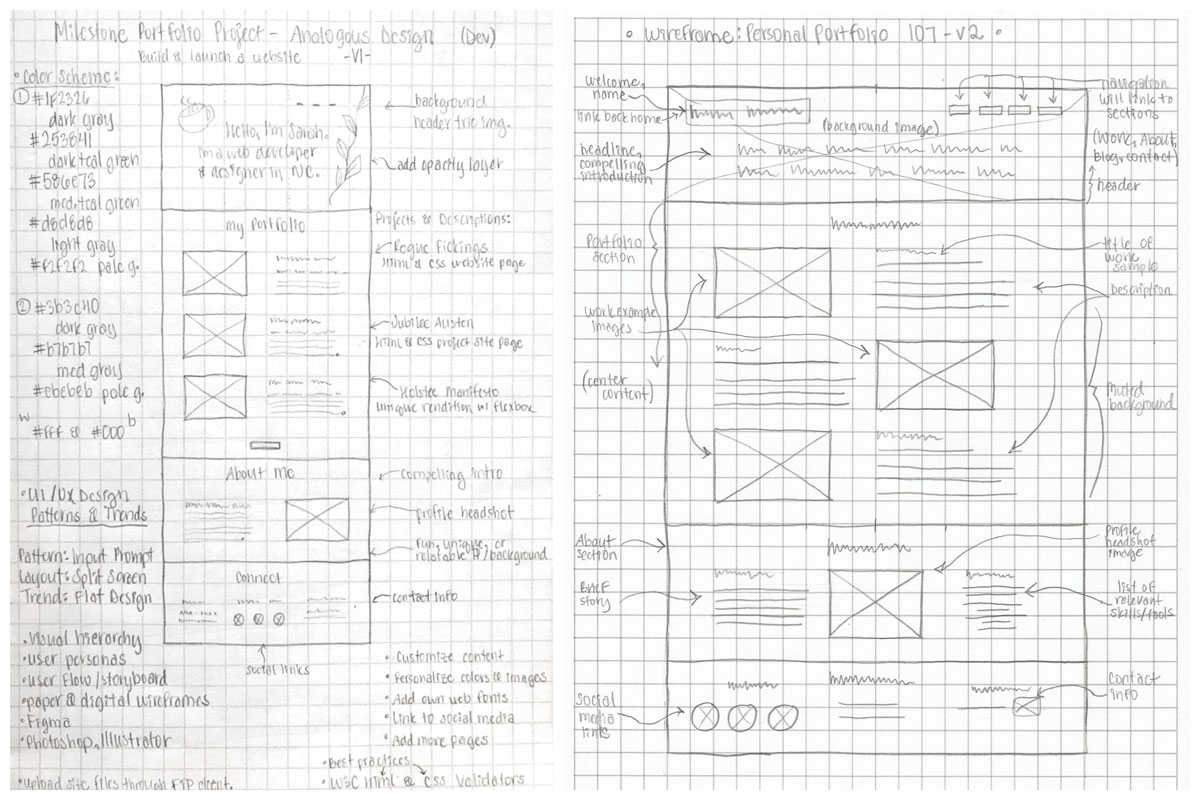 Milestone Portfolio Project - Analogous Design (Dev)
Build & launch a website -V1-
• Color Scheme:
① #1F2326
dark gray
#253841
dark teal green
#586E73
med. teal green
#d8d8d8
light gray
#f2f2f2 pale g.
② #3b3c40
dark gray
#b7b7b7
med gray
#ebebeb pale g.
w #fff & #000 b
• UI/UX Design
Patterns & Trends
Pattern: Input Prompt
Layout: Split Screen
Trend: Flat Design
• visual hierarchy
• user personas
• user flow/storyboard
• paper & digital wireframes
• Figma
• Photoshop, Illustrator
• upload site files through FTP client.
Hello, I'm Sarah.
I'm a web developer
& designer in NC.
background
header tric img.
add opacity layer
my Portfolio
Projects & Descriptions:
Rogue Pickings
Html & css website page
Jubilee Austen
HTML & CSS project site page
Holstee Manifesto
unique rendition w/ flexbox
About Me
compelling intro
profile headshot
fun, unique, or
relatable /background
Connect
contact info
social links
• Customize content
• Personalize colors & images
• Add own web fonts
• Link to social media
• Add more pages
• best practices
• W3C Html & CSS validators
• Wireframe: Personal Portfolio 107 - V2 •
welcome,
name
link back home
(background image)
navigation
will link to
sections
(Work, About,
blog, contact)
headline,
compelling
introduction
header
Portfolio
section
title of
work
sample
Description
work example
images
(center
content)
Muted
background
About
section
profile
headshot
image
Brief
story
list of
relevant
skills/tools
social
media
links
Contact
info